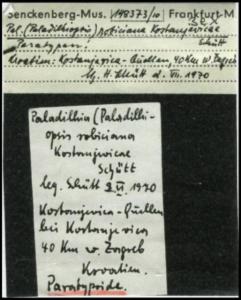 Senckenberg-Mus. 198373/10 Frankfurt-M
Pal. (Paladilhiopsis) robiciana Kostanjevicae
Paratypen! Schütt
Kroatien: Kostanjevica-Quellen, 40 km w. Zagreb
lg. H. Schütt d. VII. 1970
Paladilhia (Paladilhi-
opsis robiciana
Kostanjevicae
Schütt
leg. Schütt VII 1970
Kostanjevica-Quellen
bei Kostanjevica
40 Km w. Zagreb
Kroatien.
Paratypoide.